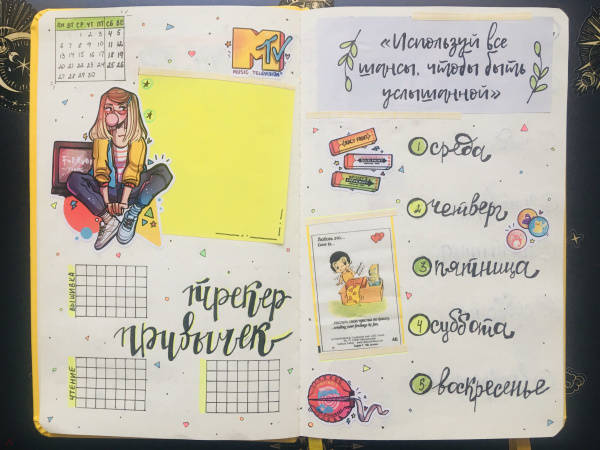 ПН ВТ СР ЧТ ПТ СБ ВС
1 2 3 4 5
6 7 8 9 10 11 12
13 14 15 16 17 18 19
20 21 22 23 24 25 26
27 28 29 30
MTV
MUSIC TELEVISION
ВЫШИВКА
трекер
привычек
ЧТЕНИЕ
«Используй все
шансы, чтобы быть
услышанной»
JUICY FRUIT
1 среда
2 четверг
3 пятница
4 суббота
5 воскресенье
Любовь это...
Love is...